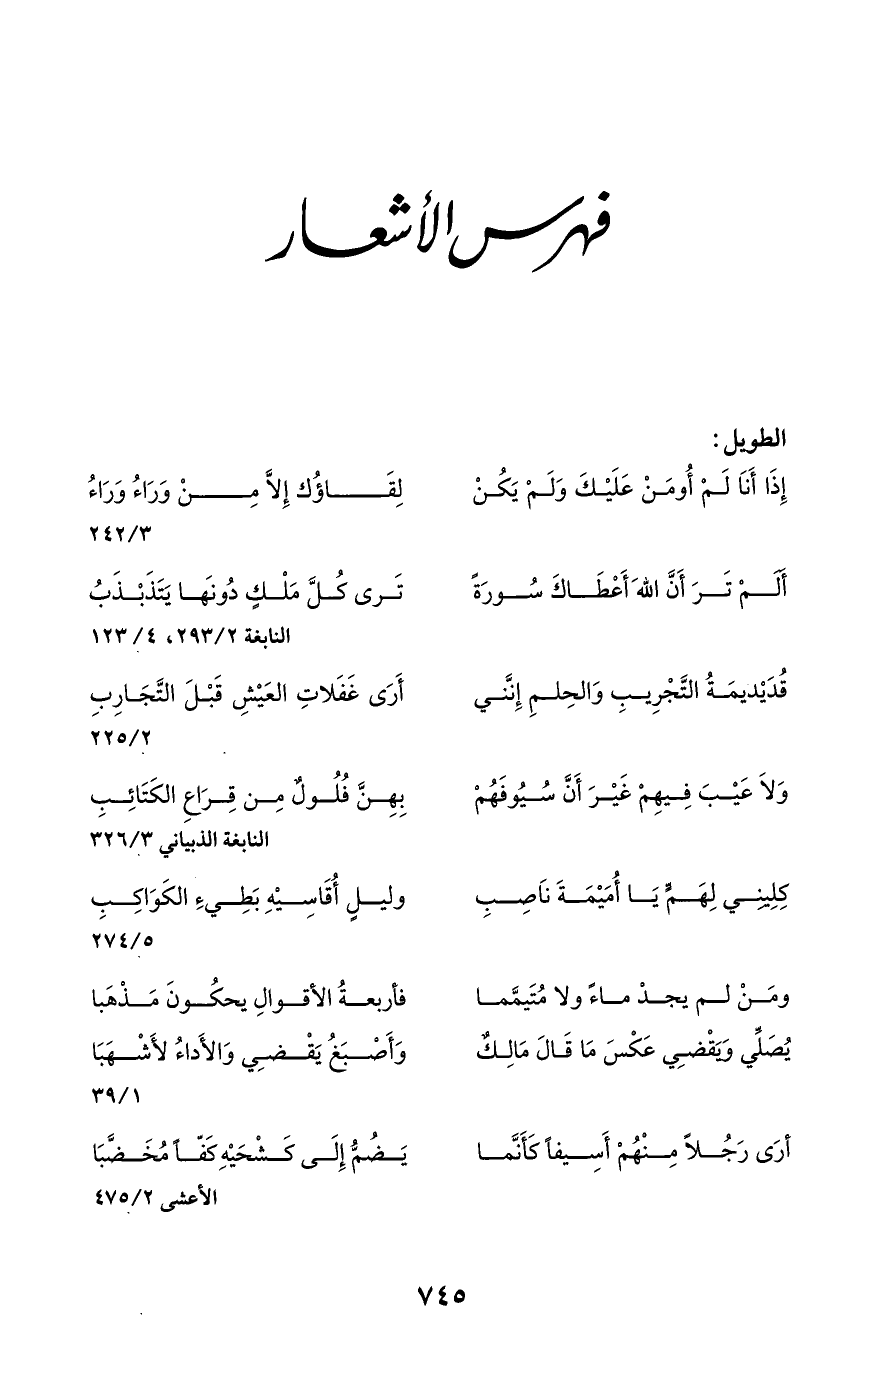 فهرس الأشعار
الطويل:
إِذَا أَنَا لَمْ أُومَنْ عَلَيْكَ وَلَمْ يَكُنْ لِقَاؤُك إِلاَّ مِنْ وَرَاءُ وَرَاءُ
٢٤٢/٣
أَلَمْ تَرَ أَنَّ اللهَ أَعْطَاكَ سُورَةً تَرى كُلَّ مَلْكٍ دُونَهَا يَتَذَبْذَبُ
النابغة ٢٩٣/٢، ١٢٣/٤
قُدَيْدِيمَةُ التَّجْرِيبِ وَالحِلمِ إِنَّني أَرَى غَفَلاتِ العَيْشِ قَبْلَ التَّجَارِبِ
٢٢٥/٢
وَلاَ عَيْبَ فِيهِمْ غَيْرَ أَنَّ سُيُوفَهُمْ بِهِنَّ فُلُولٌ مِن قِرَاعِ الكَتَائِبِ
النابغة الذبياني ٣٢٦/٣
كِلِينِي لِهَمٍّ يَا أُمَيْمَةَ نَاصِبِ وليلٍ أُقَاسِيْهِ بَطِيءِ الكَوَاكِبِ
٢٧٤/٥
ومَنْ لم يجدْ ماءً ولا مُتَيمَّما فأربعةُ الأقوالِ يحكُونَ مَذْهَبا
يُصَلِّي وَيَقْضِي عَكْسَ مَا قَالَ مَالِكٌ وَأَصْبَغُ يَقْضِي وَالأَداءُ لأَشْهَبَا
٣٩/١
أرَى رَجُلاً مِنْهُمْ أَسِيفاً كَأَنَّما يَضُمُّ إِلَى كَشْحَيْهِ كَفّاً مُخَضَّبَا
الأعشى ٤٧٥/٢
٧٤٥